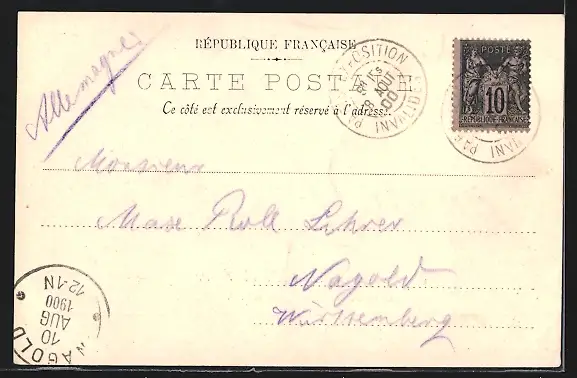 Allemagne
RÉPUBLIQUE FRANÇAISE
CARTE POSTALE
Ce côté est exclusivement réservé à l'adresse.
EXPOSITION
8 AOUT
00
PARIS INVALIDES
POSTE
10
RÉPUBLIQUE FRANÇAISE
Monsieur
Max Roll Lehrer
Nagold
Württemberg
NAGOLD
10
AUG
1900
12-1N